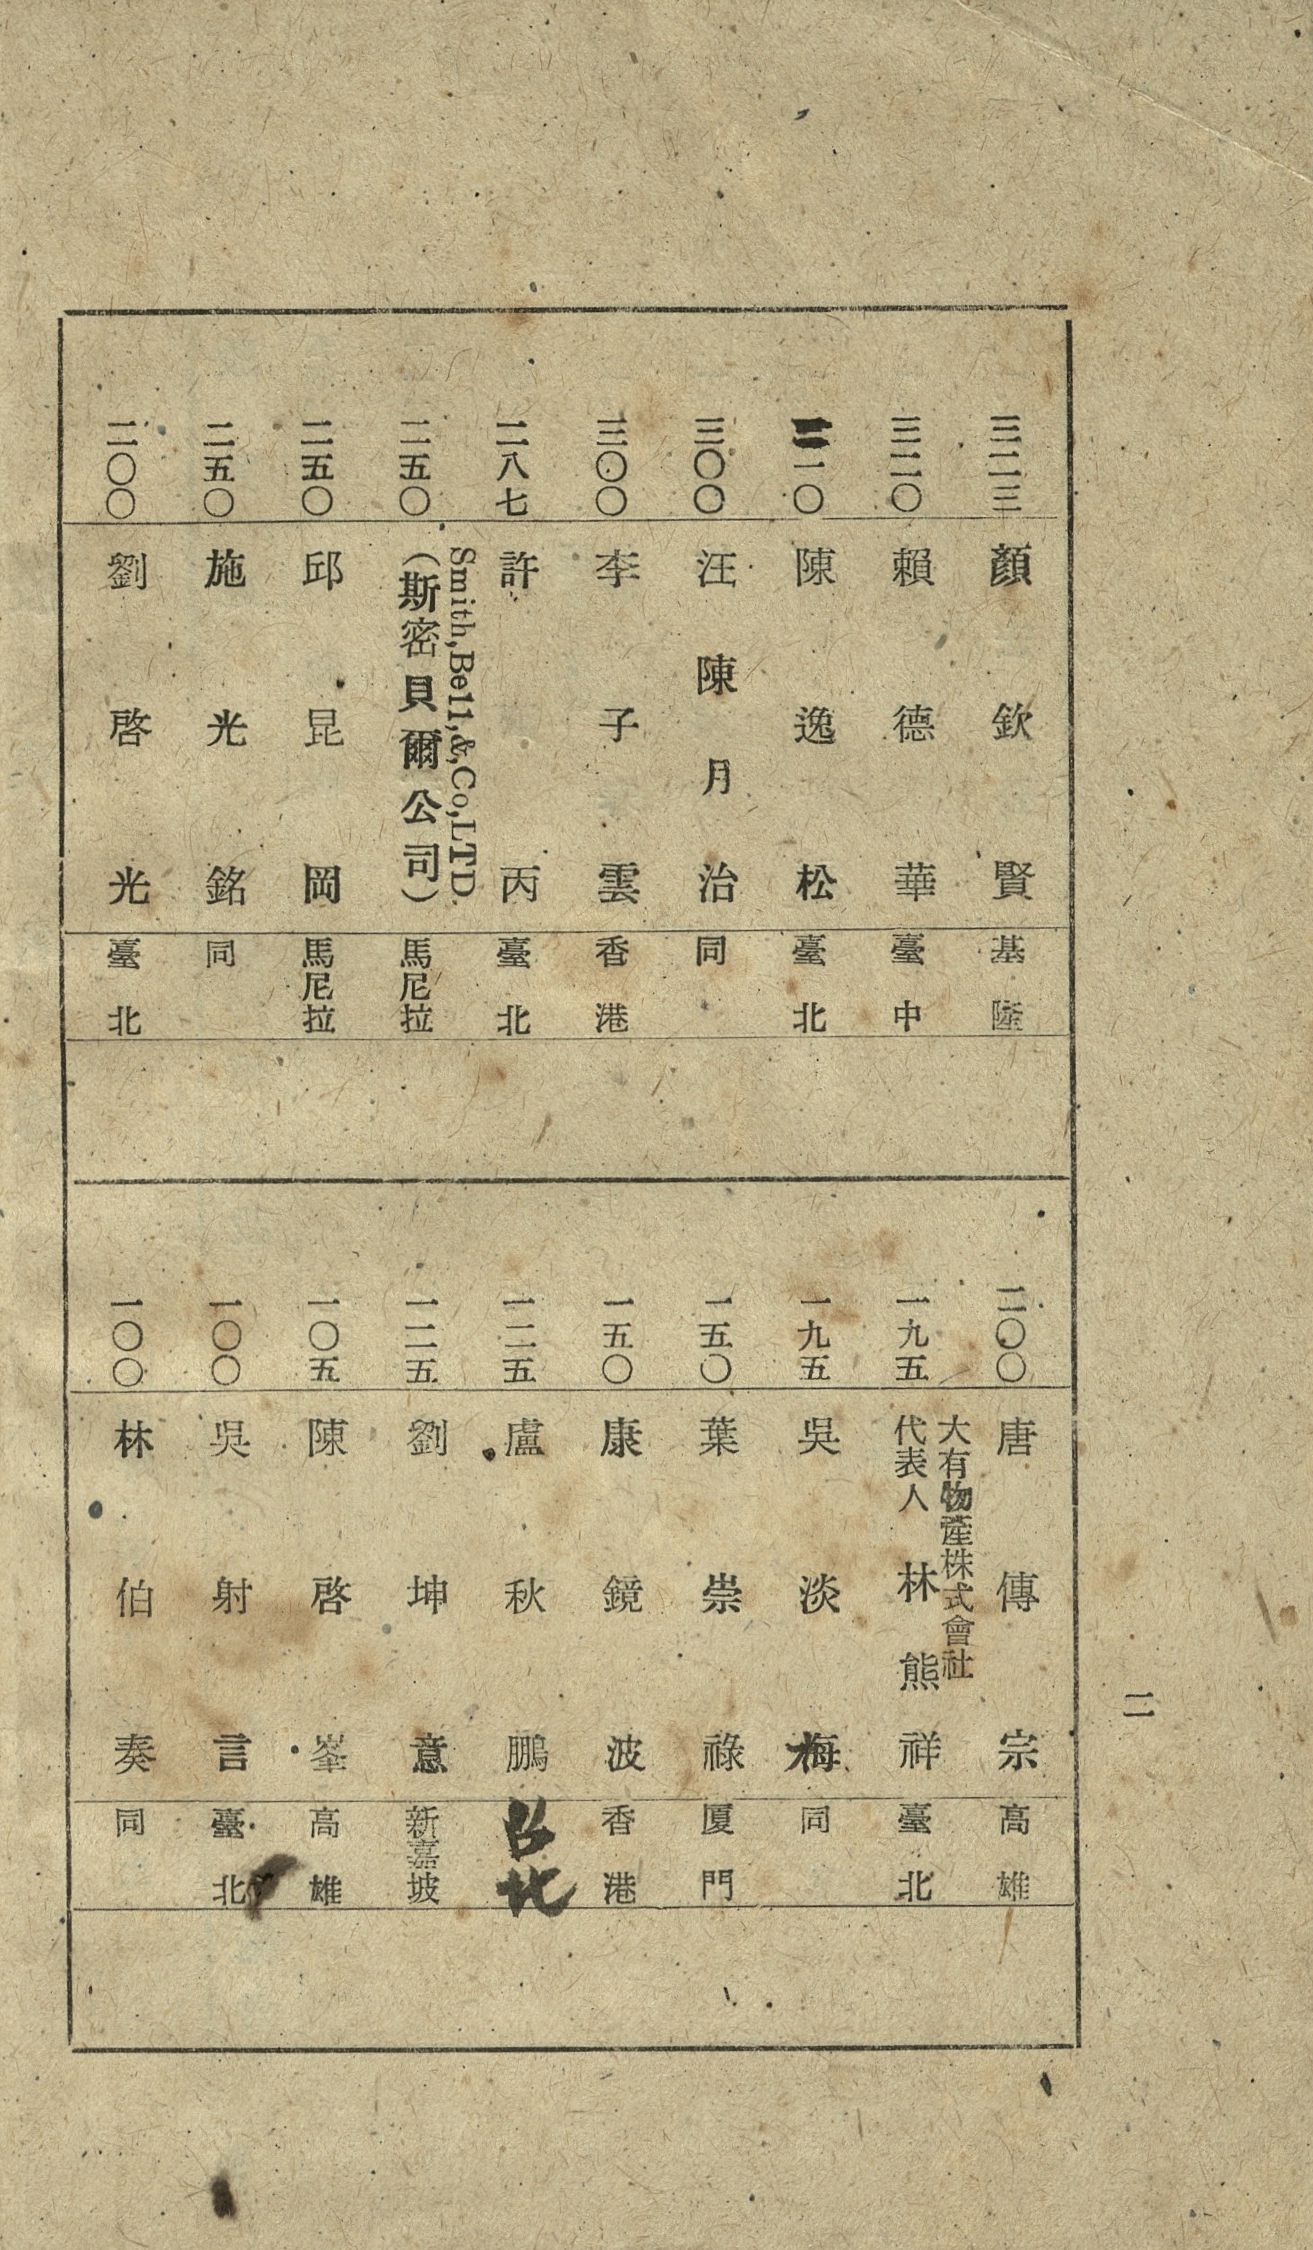 三二三 顏欽賢 基隆
三二〇 賴德華 臺中
三一〇 陳逸松 臺北
三〇〇 汪陳月治 同
三〇〇 李子雲 香港
二八七 許丙 臺北
二五〇 Smith,Bell,&,Co,LTD.
（斯密貝爾公司） 馬尼拉
二五〇 邱昆岡 馬尼拉
二五〇 施光銘 同
二〇〇 劉啓光 臺北
二〇〇 唐傳宗 高雄
一九五 大有物產株式會社
代表人 林熊祥 臺北
一九五 吳淡梅 同
一五〇 葉崇祿 厦門
一五〇 康鏡波 香港
一二五 盧秋鵬 台北
一二五 劉坤意 新嘉坡
一〇五 陳啓峯 高雄
一〇〇 吳射言 臺北
一〇〇 林伯奏 同
二